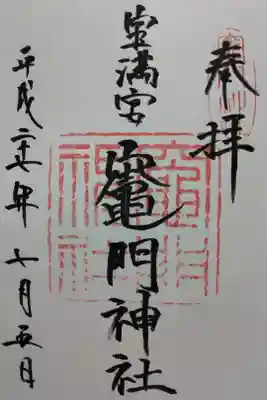 奉拝
宝満宮
竈門神社
平成二十七年七月五日